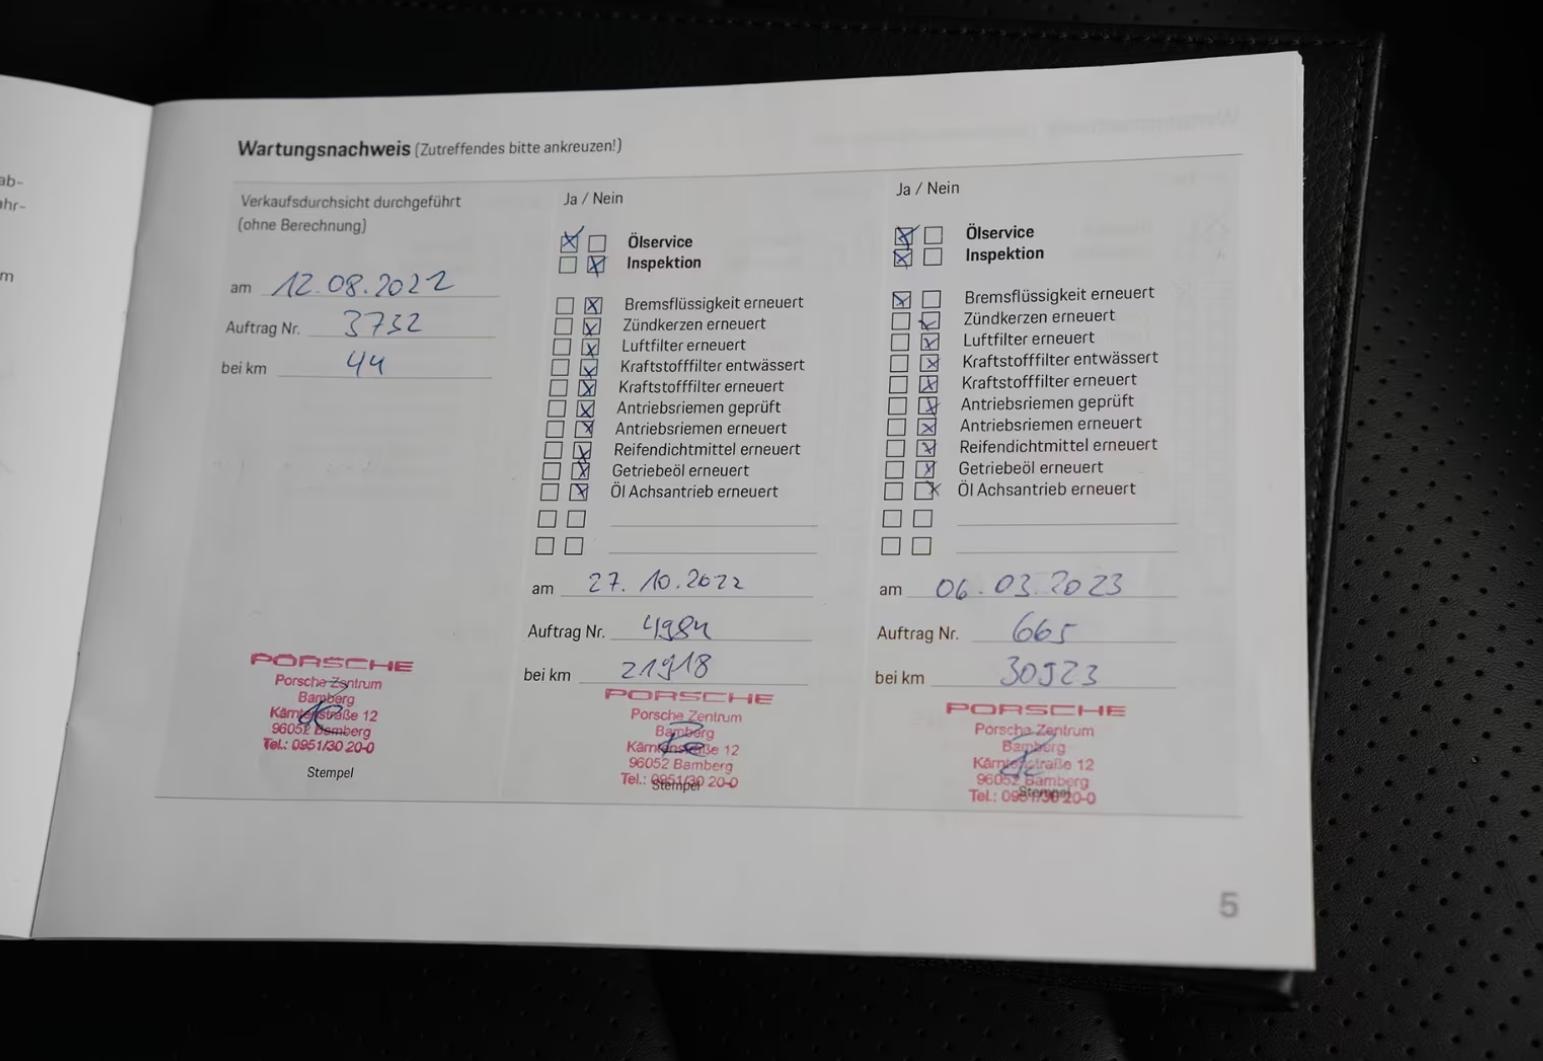 ab-
ahr-
m
Wartungsnachweis (Zutreffendes bitte ankreuzen!)
Verkaufsdurchsicht durchgeführt
(ohne Berechnung)
am 12.08.2022
Auftrag Nr. 3732
bei km 44
PORSCHE
Porsche Zentrum
Bamberg
Kärntenstraße 12
96052 Bamberg
Tel.: 0951/30 20-0
Stempel
Ja / Nein
Ölservice
Inspektion
Bremsflüssigkeit erneuert
Zündkerzen erneuert
Luftfilter erneuert
Kraftstofffilter entwässert
Kraftstofffilter erneuert
Antriebsriemen geprüft
Antriebsriemen erneuert
Reifendichtmittel erneuert
Getriebeöl erneuert
Öl Achsantrieb erneuert
am 27.10.2022
Auftrag Nr. 4984
bei km 21918
PORSCHE
Porsche Zentrum
Bamberg
Kärntenstraße 12
96052 Bamberg
Tel.: 0951/30 20-0
Stempel
Ja / Nein
Ölservice
Inspektion
Bremsflüssigkeit erneuert
Zündkerzen erneuert
Luftfilter erneuert
Kraftstofffilter entwässert
Kraftstofffilter erneuert
Antriebsriemen geprüft
Antriebsriemen erneuert
Reifendichtmittel erneuert
Getriebeöl erneuert
Öl Achsantrieb erneuert
am 06.03.2023
Auftrag Nr. 665
bei km 30923
PORSCHE
Porsche Zentrum
Bamberg
Kärntenstraße 12
96052 Bamberg
Tel.: 0951/30 20-0
Stempel
5